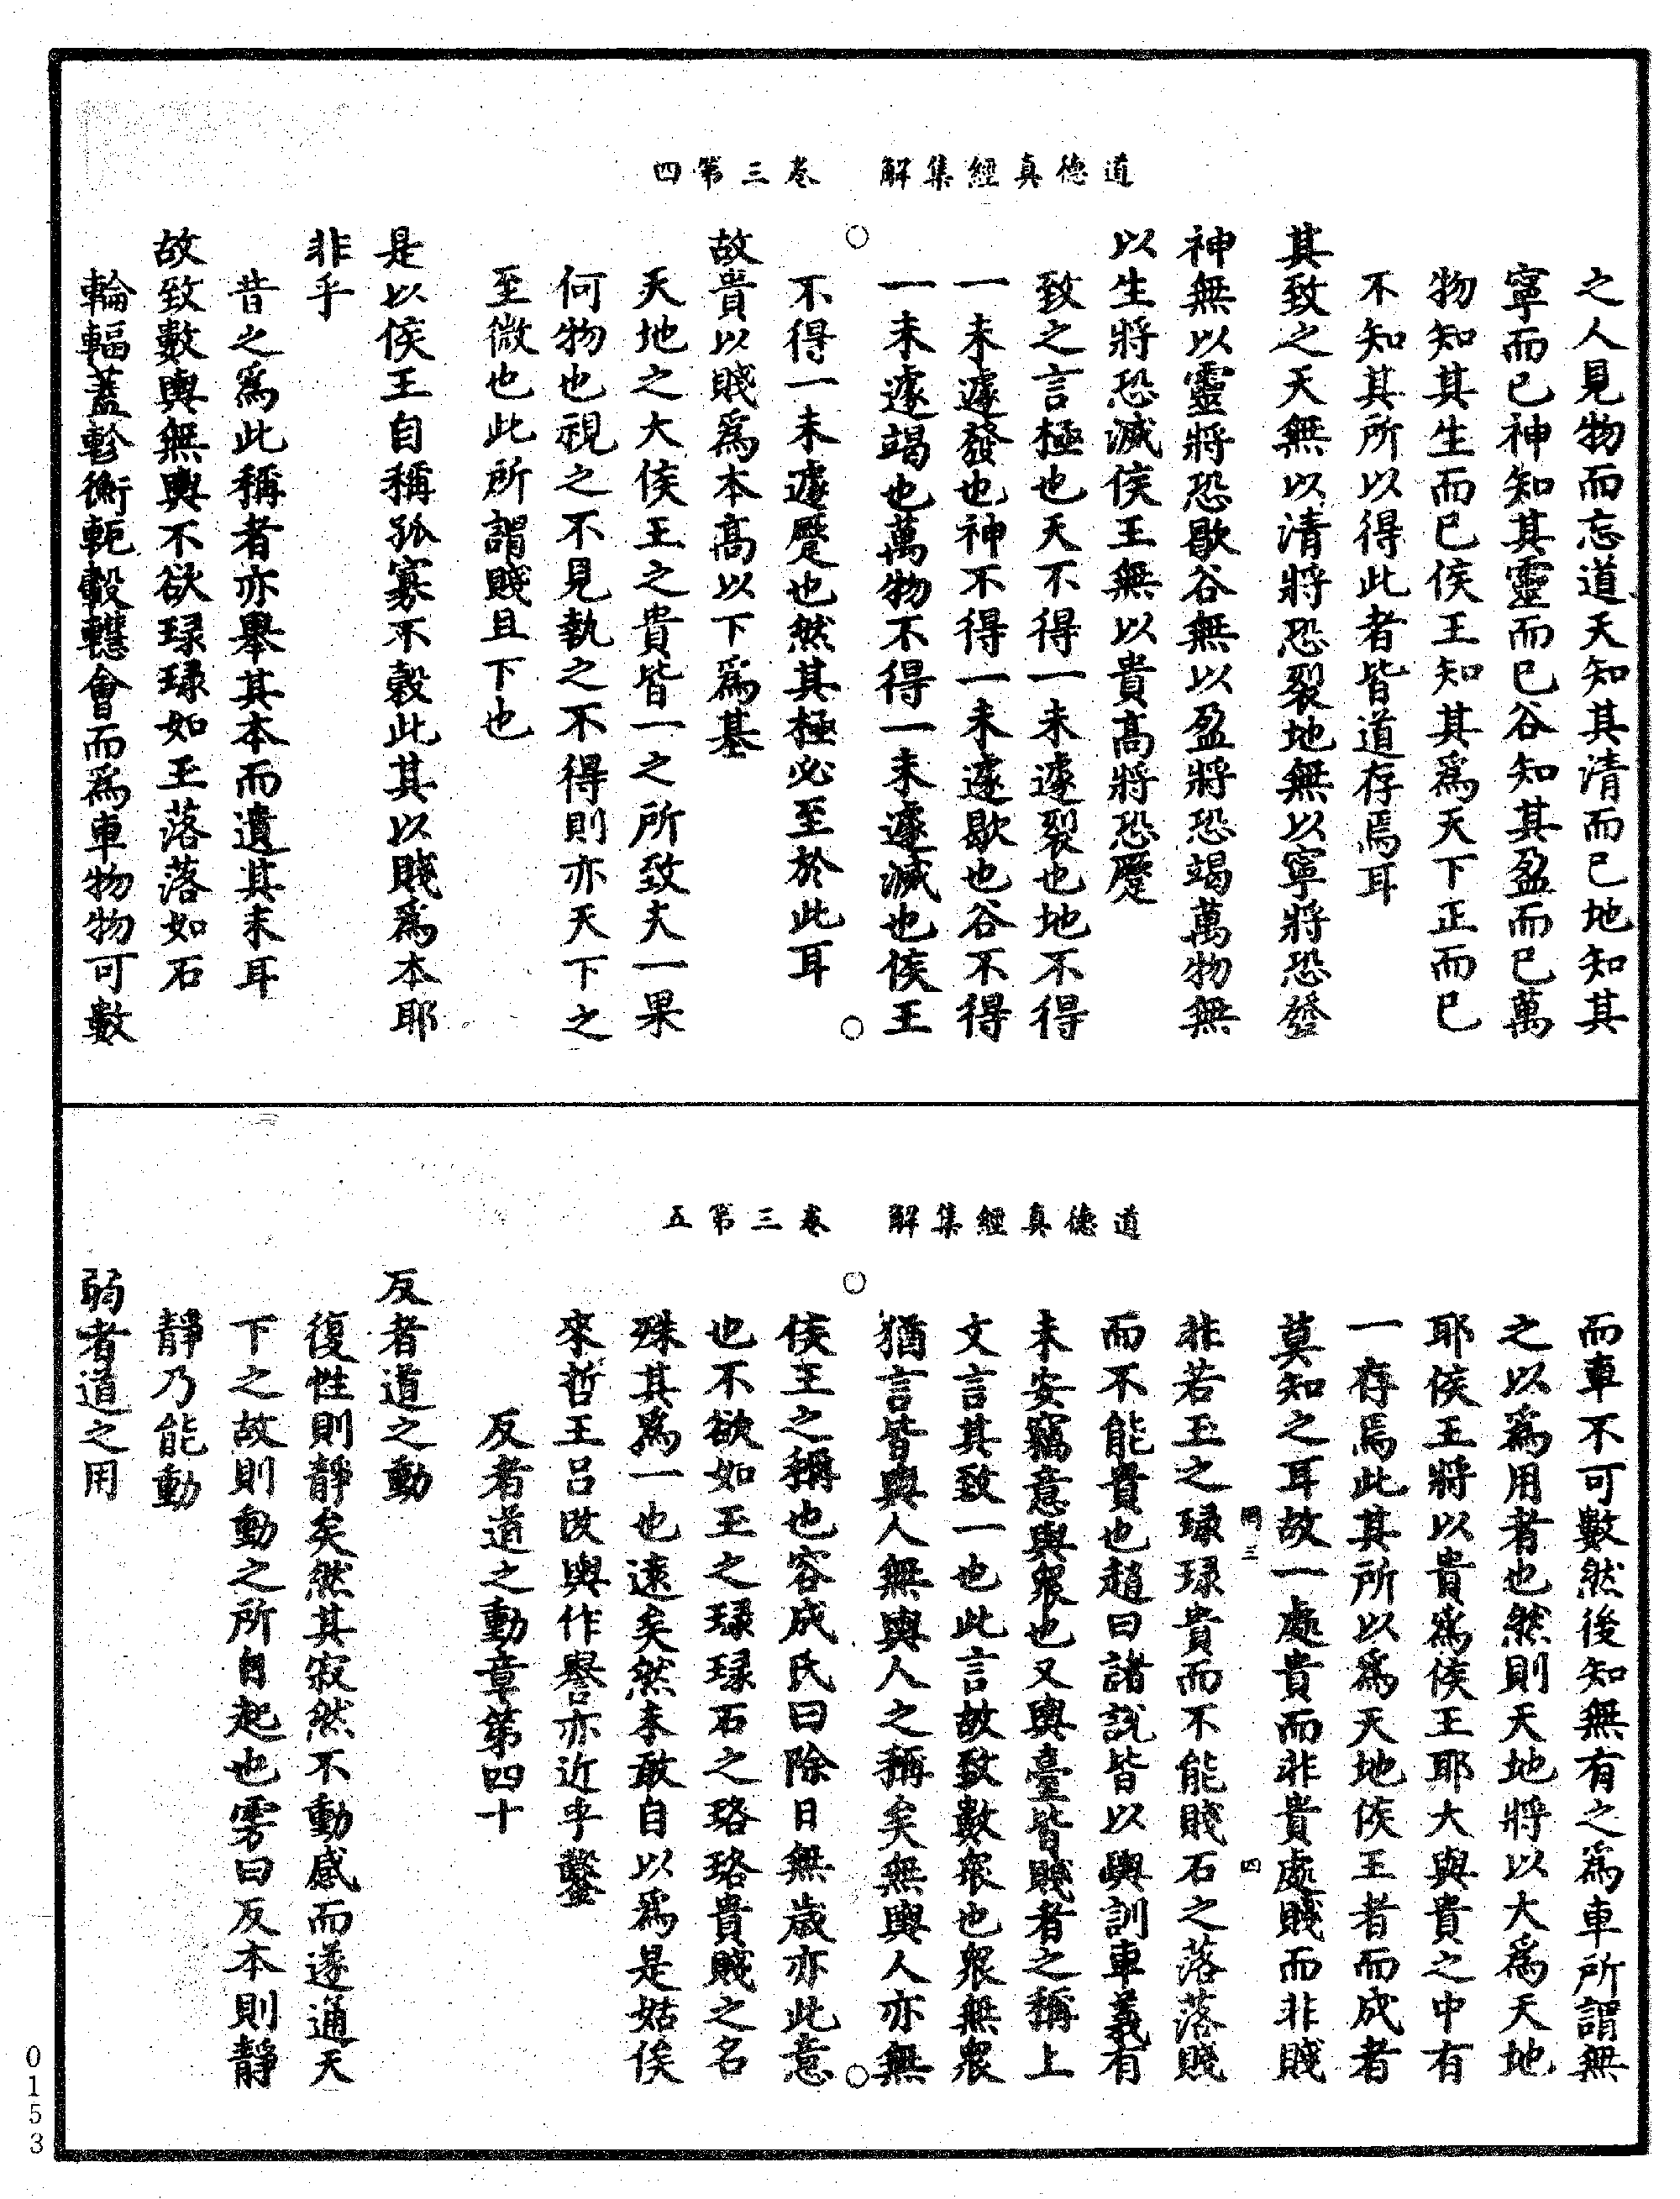 道德真經集解　卷三第四
之人見物而忘道天知其清而已地知其
寧而已神知其靈而已谷知其盈而已萬
物知其生而已侯王知其爲天下正而已
不知其所以得此者皆道存焉耳
其致之天無以清將恐裂地無以寧將恐發
神無以靈將恐歇谷無以盈將恐竭萬物無
以生將恐滅侯王無以貴高將恐蹙
致之言極也天不得一未遽裂也地不得
一未遽發也神不得一未遽歇也谷不得
一未遽竭也萬物不得一未遽滅也侯王
○
不得一未遽蹙也然其極必至於此耳
○
故貴以賤爲本高以下爲基
天地之大侯王之貴皆一之所致夫一果
何物也視之不見執之不得則亦天下之
至微也此所謂賤且下也
是以侯王自稱孤寡不穀此其以賤爲本耶
非乎
昔之爲此稱者亦舉其本而遺其末耳
故致數輿無輿不欲琭琭如玉落落如石
輪輻蓋軫衡軛轂轊會而爲車物物可數
道德真經集解　卷三第五
而車不可數然後知無有之爲車所謂無
之以爲用者也然則天地將以大爲天地
耶侯王將以貴爲侯王耶大與貴之中有
一存焉此其所以爲天地侯王者而成者
莫知之耳故一處貴而非貴處賤而非賤
罔三　四
非若玉之琭琭貴而不能賤石之落落賤
而不能貴也趙曰諸說皆以輿訓車義有
未安竊意輿衆也又輿臺皆賤者之稱上
文言其致一也此言故致數衆也衆無衆
猶言皆與人無輿人之稱矣無輿人亦無
○
侯王之稱也容成氏曰除日無歲亦此意
○
也不欲如玉之琭琭石之珞珞貴賤之名
殊其爲一也遠矣然未敢自以爲是姑俟
來哲王呂改輿作譽亦近乎鑿
反者道之動章第四十
反者道之動
復性則靜矣然其寂然不動感而遂通天
下之故則動之所自起也雱曰反本則靜
靜乃能動
弱者道之用
0153